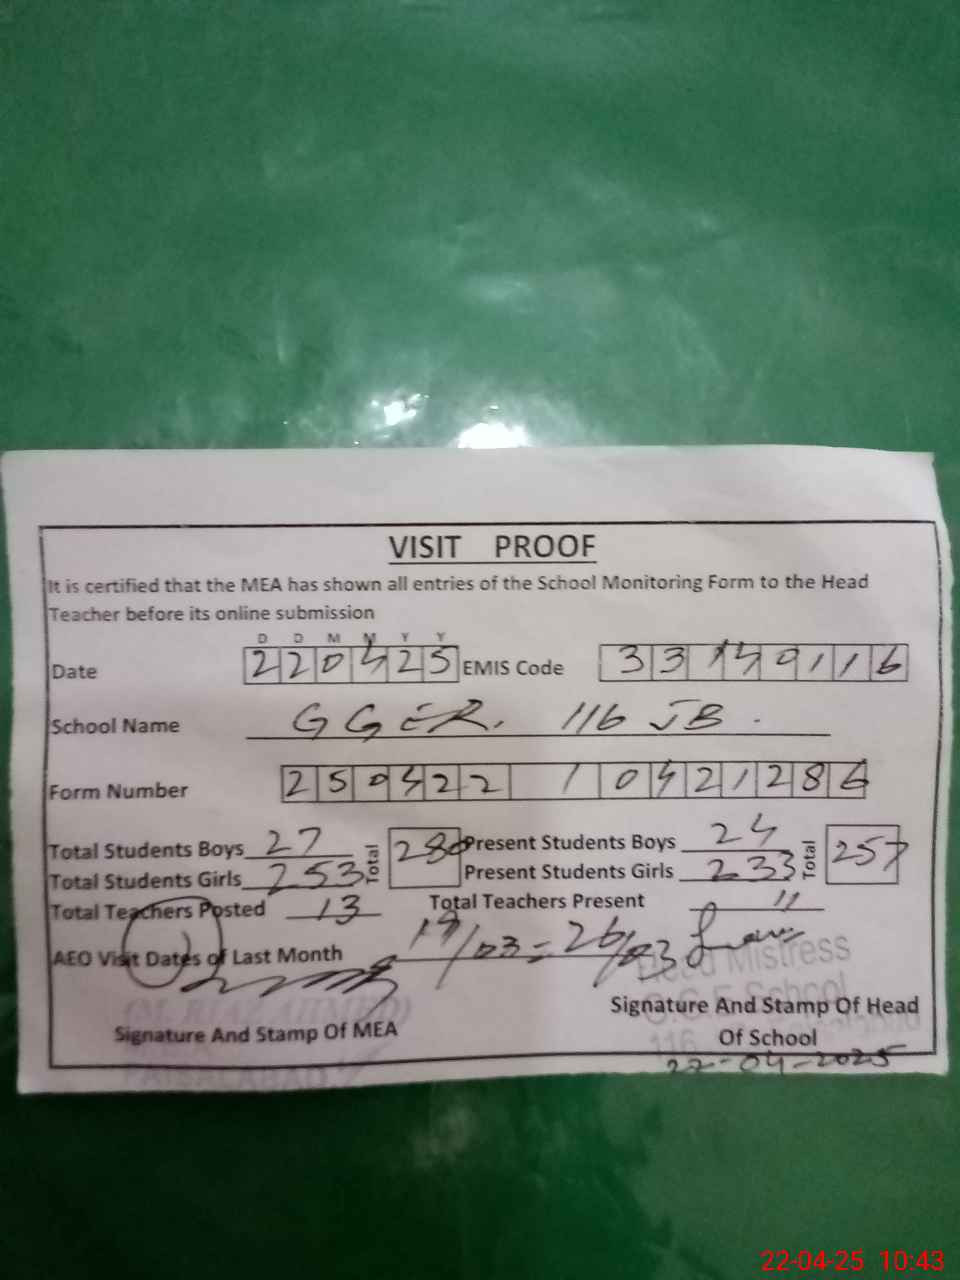 VISIT PROOF
It is certified that the MEA has shown all entries of the School Monitoring Form to the Head
Teacher before its online submission
D D M M Y Y
Date 220425 EMIS Code 33140116
School Name GGER. 116 JB.
Form Number 250422 10421286
Total Students Boys 27 Total 280 Present Students Boys 24 Total 257
Total Students Girls 253 Present Students Girls 233
Total Teachers Posted 13 Total Teachers Present 11
AEO Visit Dates of Last Month 19/03 = 26/03
Head Mistress
School
116
Signature And Stamp Of MEA
Signature And Stamp Of Head
Of School
22-04-2025
(M. RIAZ AHMED)
FAISALABAD
22-04-25 10:43